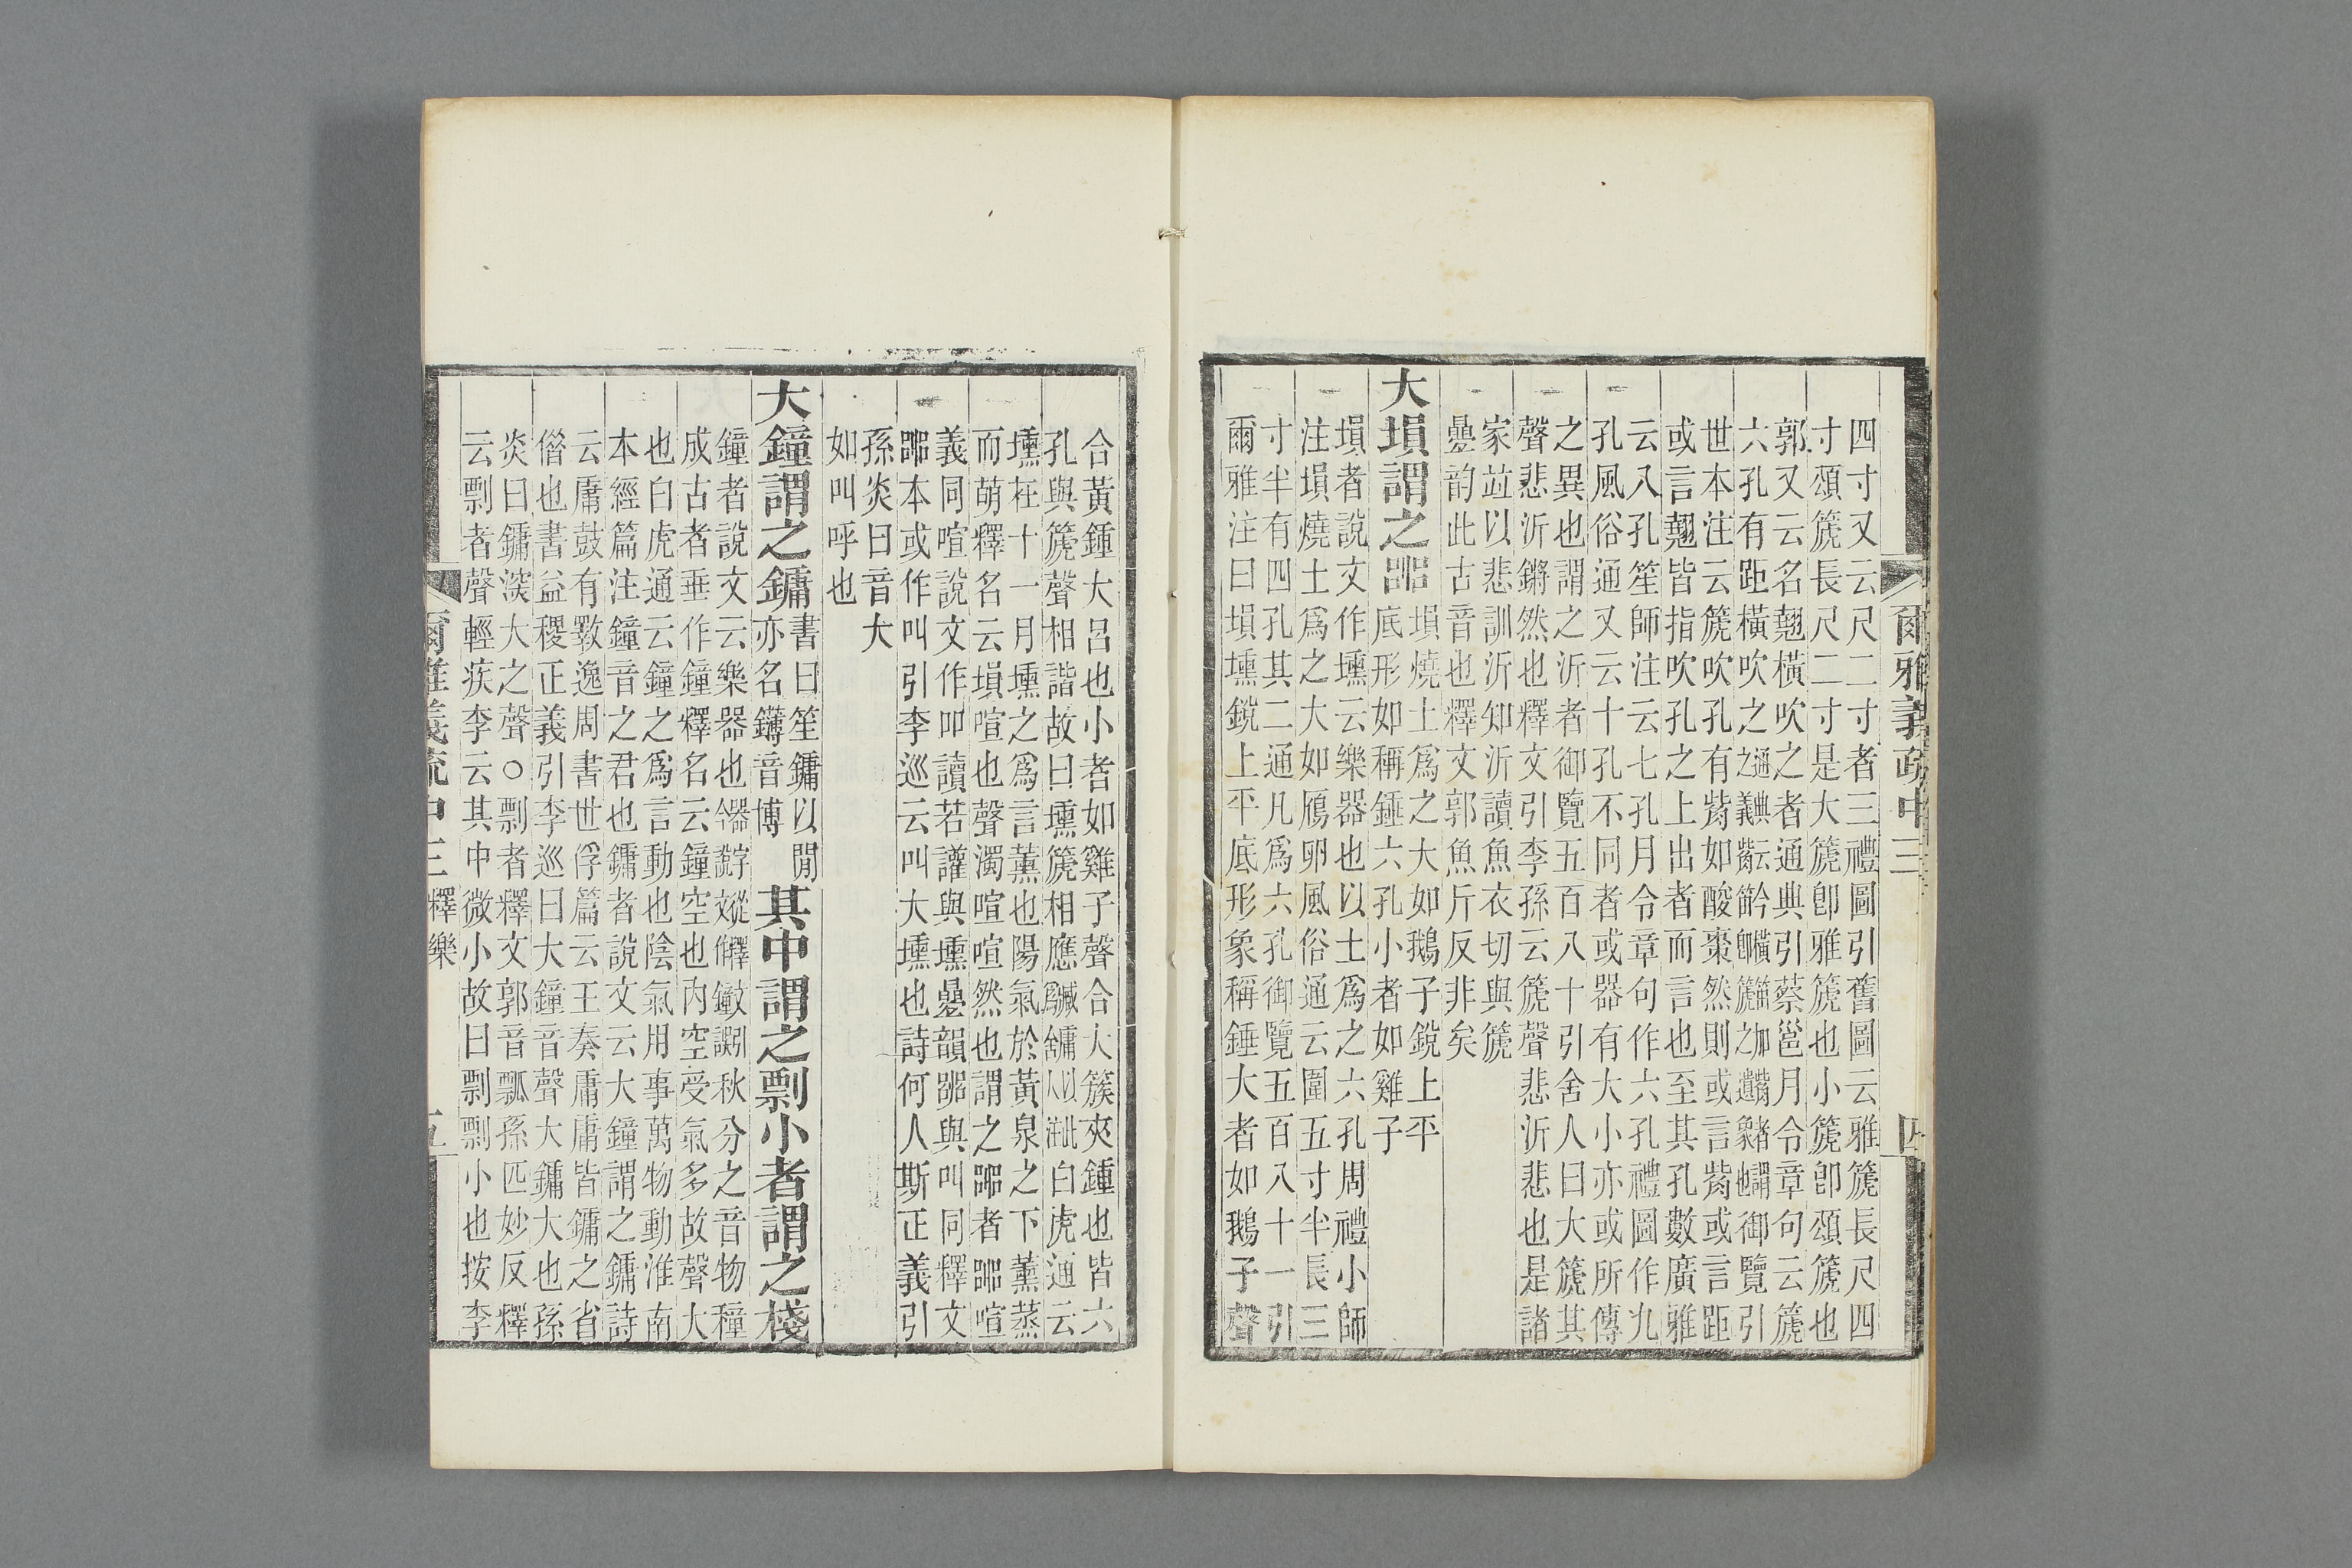 爾雅義疏中三
四
四寸又云尺二寸者三禮圖引舊圖云雅篪長尺四
寸頌篪長尺二寸是大篪卽雅篪也小篪卽頌篪也
郭又云名翹橫吹之者通典引蔡邕月令章句云篪
六孔有距橫吹之御覽引
世本注云篪吹孔有觜如酸棗然則或言觜或言距
或言翹皆指吹孔之上出者而言也至其孔數廣雅
云八孔笙師注云七孔月令章句作六孔禮圖作九
孔風俗通又云十孔不同者或器有大小亦或所傳
之異也謂之沂者御覽五百八十引舍人曰大篪其
聲悲沂鏘然也釋文引李孫云篪聲悲沂悲也是諸
家竝以悲訓沂知沂讀魚衣切與篪
疊韵此古音也釋文郭魚斤反非矣
大塤謂之嘂
塤燒土爲之大如鵝子銳上平
底形如稱錘六孔小者如雞子
塤者說文作壎云樂器也以土爲之六孔周禮小師
注塤燒土爲之大如鴈卵風俗通云圍五寸半長三
寸半有四孔其二通凡爲六孔御覽五百八十一引
爾雅注曰塤壎銳上平底形象稱錘大者如鵝子聲
合黃鍾大呂也小者如雞子聲合大簇夾鍾也皆六
孔與篪聲相諧故曰壎篪相應白虎通云
壎在十一月壎之爲言薰也陽氣於黃泉之下薰蒸
而萌釋名云塤喧也聲濁喧喧然也謂之嘂者嘂喧
義同喧說文作吅讀若讙與壎疊韻嘂與叫同釋文
嘂本或作叫引李巡云叫大壎也詩何人斯正義引
孫炎曰音大
如叫呼也
大鐘謂之鏞
書曰笙鏞以閒
亦名鑮音博
其中謂之剽小者謂之棧
鐘者說文云樂器也秋分之音物穜
成古者垂作鐘釋名云鐘空也內空受氣多故聲大
也白虎通云鐘之爲言動也陰氣用事萬物動淮南
本經篇注鐘音之君也鏞者說文云大鐘謂之鏞詩
云庸鼓有斁逸周書世俘篇云王奏庸庸皆鏞之省
僣也書益稷正義引李巡曰大鐘音聲大鏞大也孫
炎曰鏞深大之聲○剽者釋文郭音瓢孫匹妙反釋
云剽者聲輕疾李云其中微小故曰剽剽小也按李
爾雅義疏中三釋樂
五